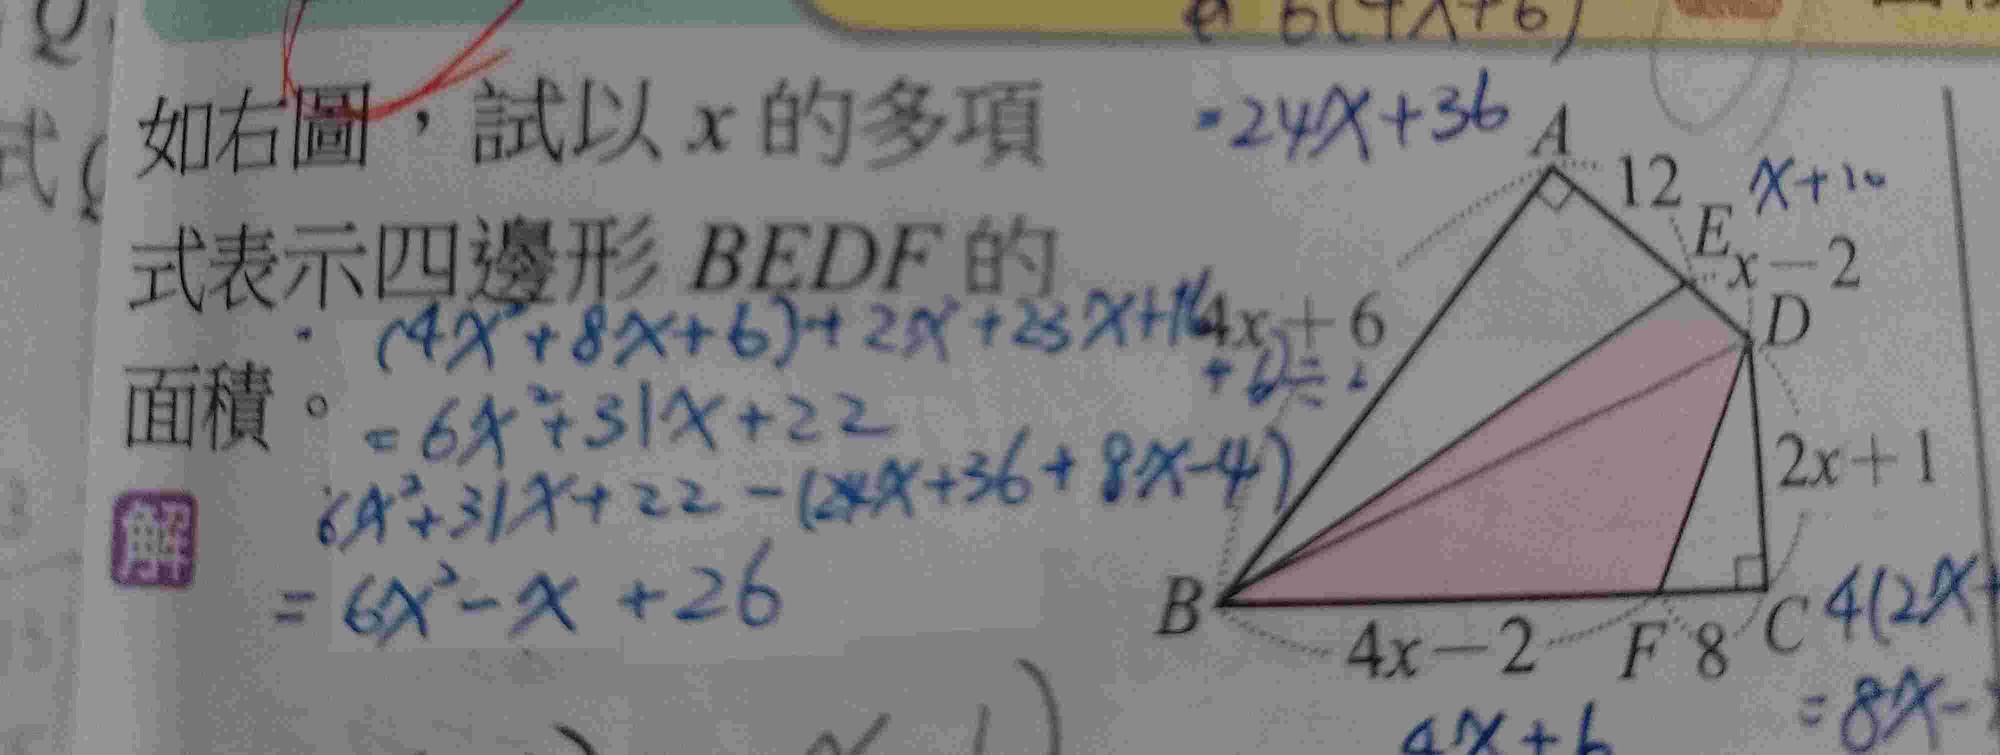 6(4x+6)
=24x+36
如右圖，試以 x 的多項
式表示四邊形 BEDF 的
面積。
(4x²+8x+6)+2x²+23x+16
+6)÷2
=6x²+31x+22
6x²+31x+22-(24x+36+8x-4)
=6x²-x+26
解
A
12
x+10
E
x-2
D
4x+6
2x+1
B
4x-2
F
8
C
4(2x+
=8x-
4x+6